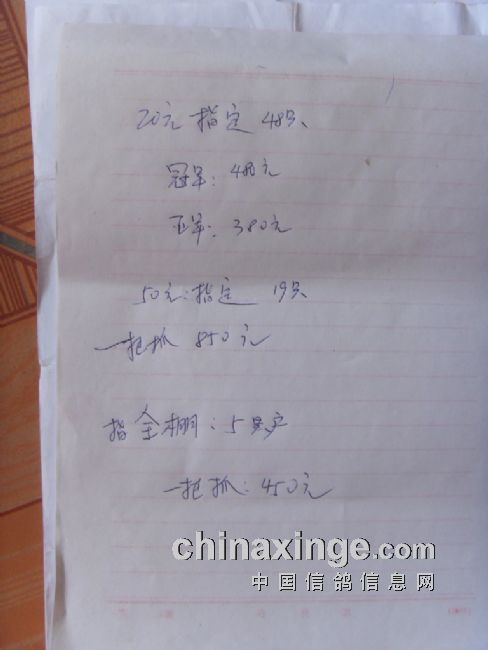 20元指定 48只、
冠军: 480元
亚军: 380元
50元: 指定 19只
一把抓 850元
指全棚: 5户
一把抓: 450元
chinaxinge.com
中国信鸽信息网